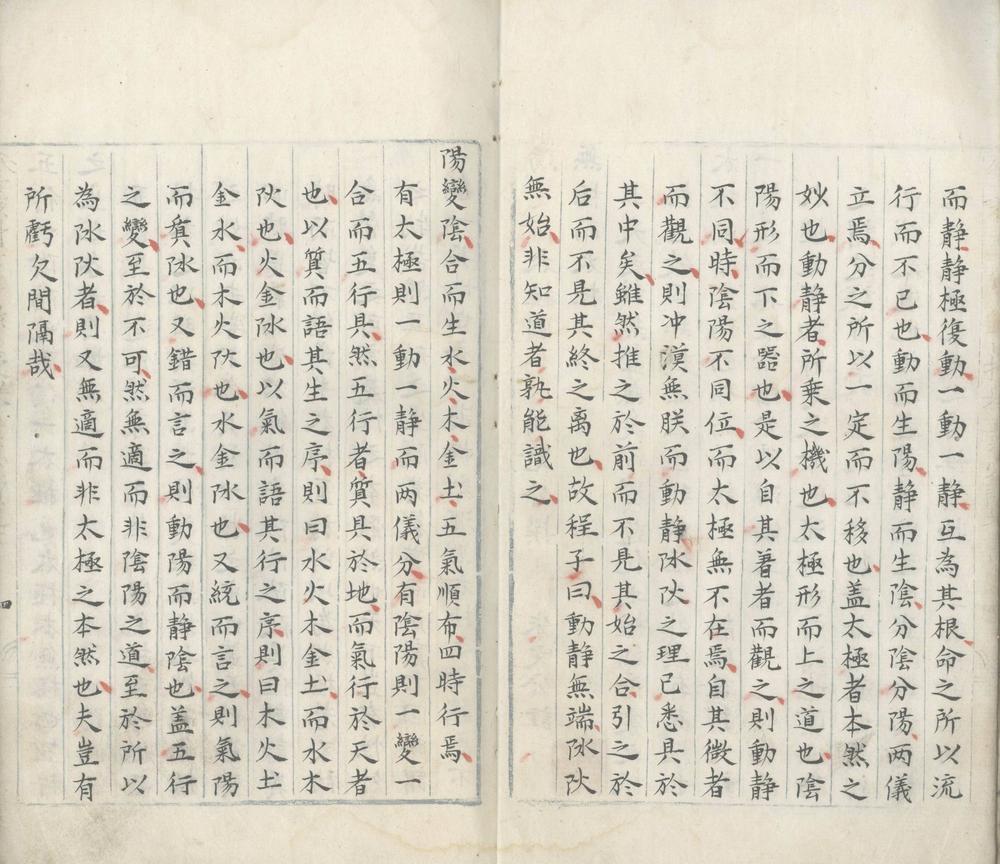 而静静極復動一動一静互為其根命之所以流
行而不已也動而生陽静而生陰分陰分陽两儀
立焉分之所以一定而不移也盖太極者本然之
妙也動静者所乗之機也太極形而上之道也陰
陽形而下之噐也是以自其著者而觀之則動静
不同時陰陽不同位而太極無不在焉自其微者
而觀之則冲漠無朕而動静阴阦之理已悉具於
其中矣雖然推之於前而不見其始之合引之於
后而不見其終之离也故程子曰動静無端阴阦
無始非知道者孰能識之
陽變陰合而生水火木金土五氣順布四時行焉
有太極則一動一静而两儀分有陰陽則一變一
合而五行具然五行者質具於地而氣行於天者
也以質而語其生之序則曰水火木金土而水木
阦也火金阴也以氣而語其行之序則曰木火土
金水而木火阦也水金阴也又統而言之則氣陽
而質阴也又錯而言之則動陽而静陰也盖五行
之變至於不可然無適而非陰陽之道至於所以
為阴阦者則又無適而非太極之本然也夫豈有
所虧欠間隔哉